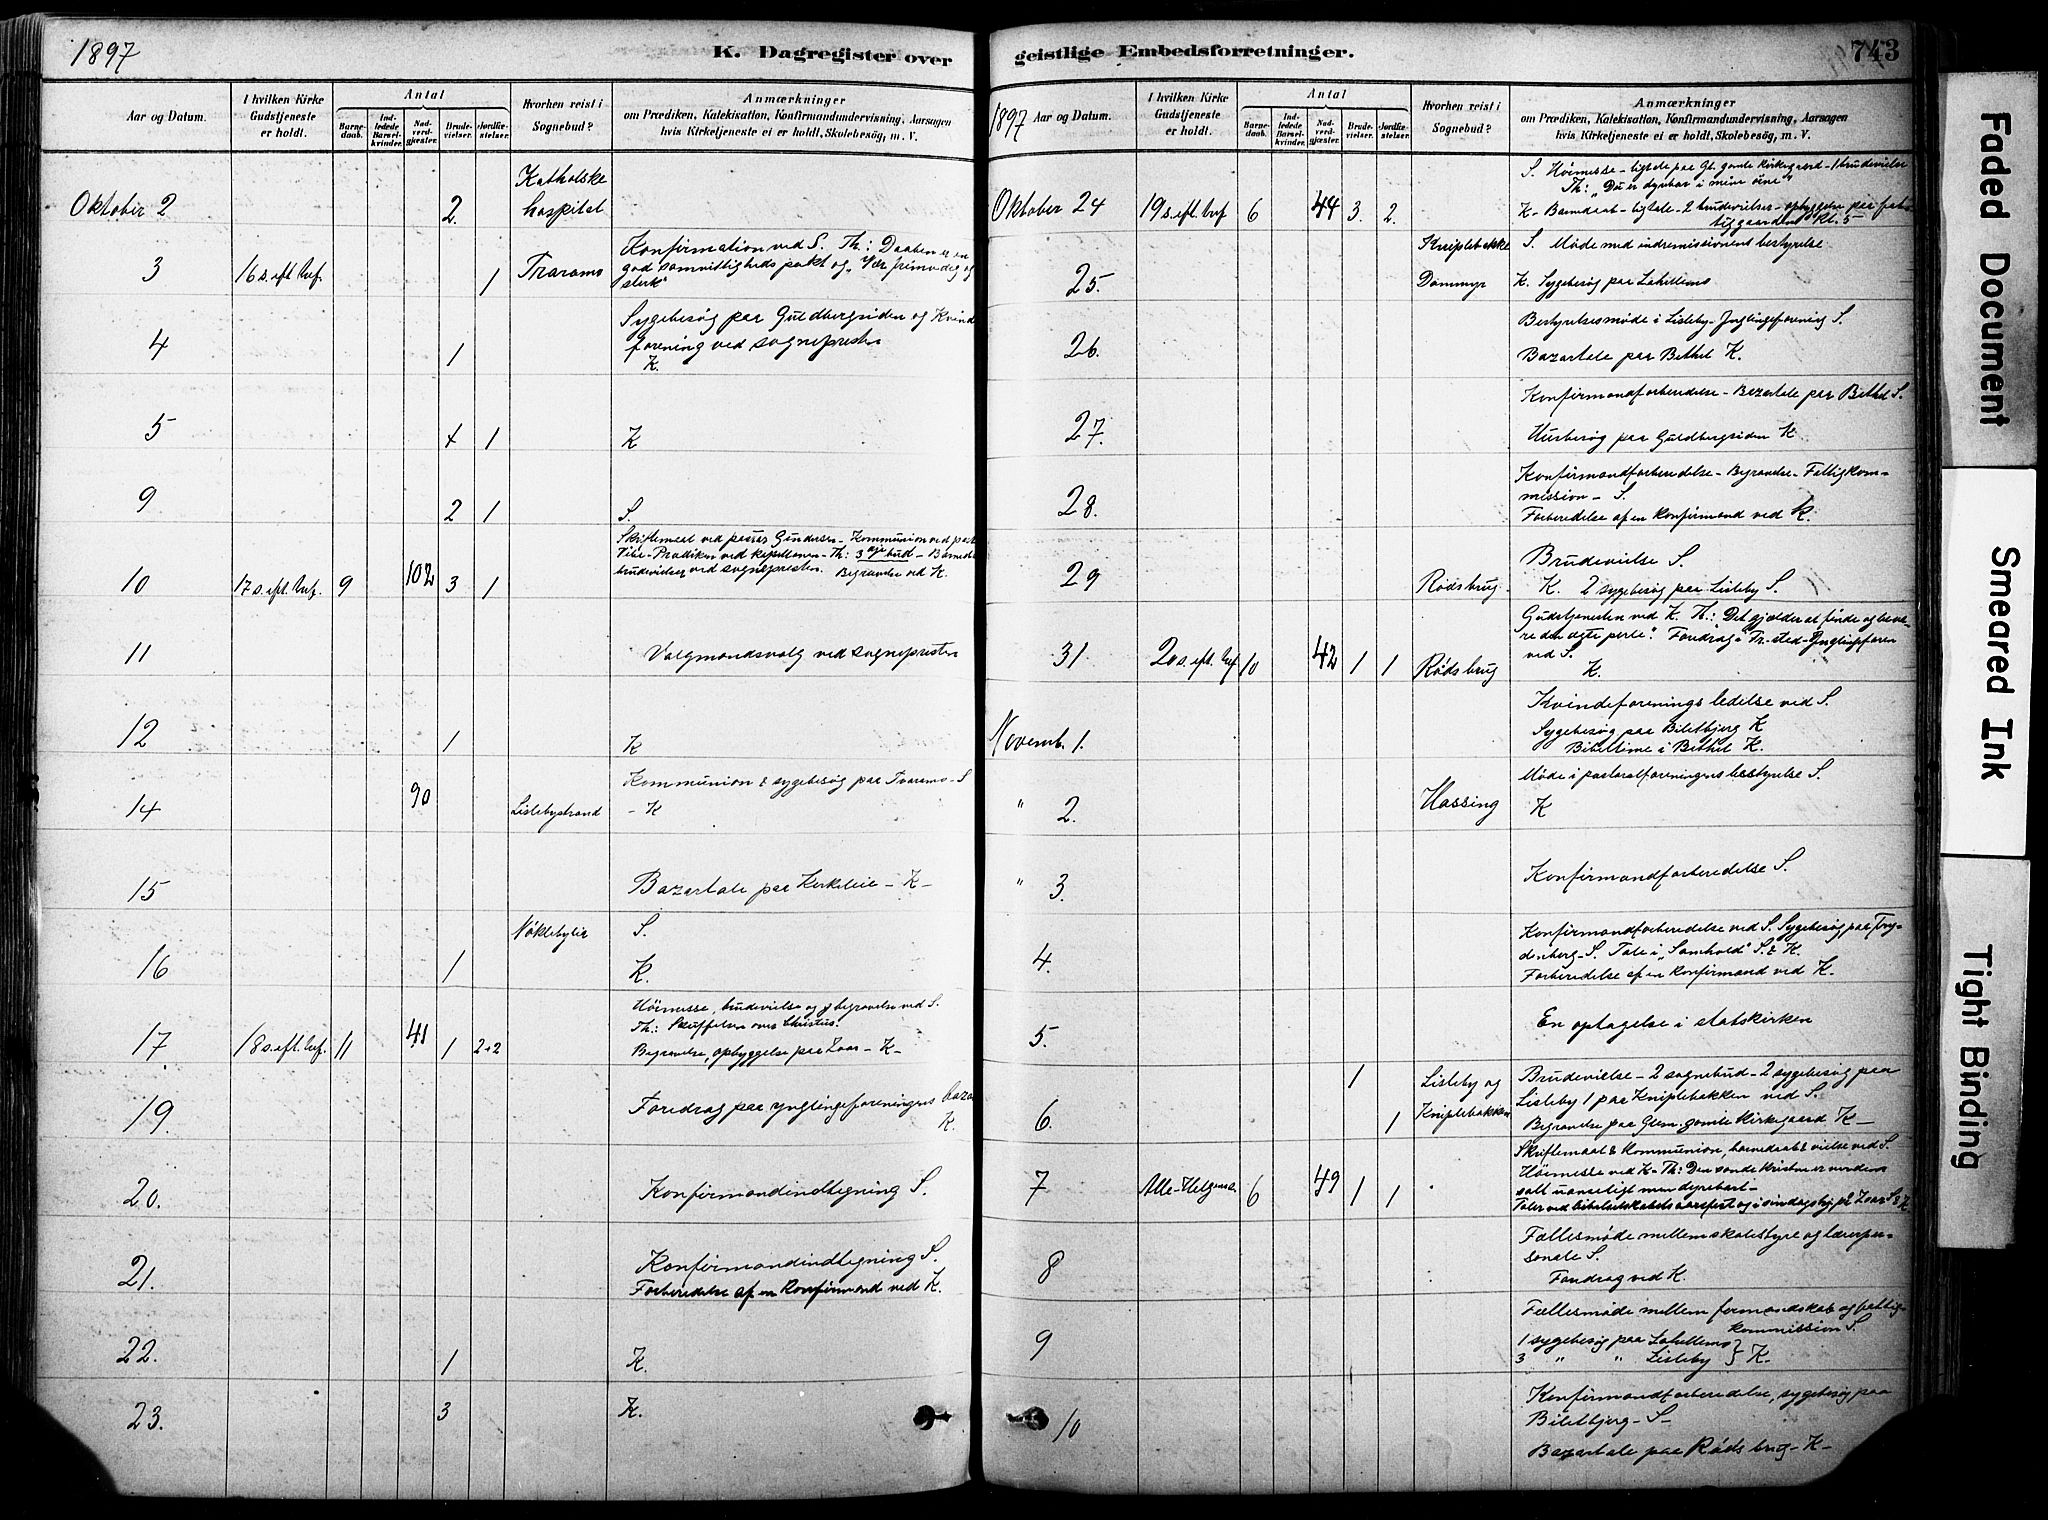 1897
K. Dagregister over
Aar og Datum.
I hvilken Kirke Gudstjeneste er holdt.
Antal
Barnedaab.
Indledede Barselkvinder.
Nadverdgjæster.
Brudevielser.
Jordfæstelser.
Hvorhen reist i Sognebud?
Anmærkninger
om Prædiken, Katekisation, Konfirmandundervisning, Aarsagen
hvis Kirketjeneste ei er holdt, Skolebesög, m. V.
Oktober 2 2 Katholske hospital
3 16 s. eft. tref. 1 Traramo Konfirmation ved S. Th.: Daaben er en
god samvittigheds pakt og "Vær frimodig og
sterk"
4 1 Sygebesøg paa Guldbergsiden og Kvinde
forening ved sognepresten
K.
5 4 1 K
9 2 1 S.
10 17 s. eft. tref. 9 102 3 1 Skriftemaal ved pastor Gundersen - Kommunion ved past
- Prædiken ved kapellanen - Th: 3die bud -
brudevielser ved sognepresten. Begravelse ved K.
11 Valgmandsvalg ved sognepresten
12 1 K
14 90 Lislebystrand Kommunion & sygebesøg paa Traramo - S
- K
15 Bazartale paa Kirkeleie - K -
16 1 Nøklebylie S.
K.
17. 18 s. eft. tref. 11 41 1 2+2 Höimesse, brudevielse og begravelse ved S.
Th.: Skuffelser over Christus.
Begravelse, opbyggelse paa Zoar - K -
19. Foredrag paa Ynglingeforeningens baza
K.
20. Konfirmandindtegning S.
21. Konfirmandindtegning S.
Forberedelse af en konfirmand ved K.
22. 1 K.
23. 3 K.
geistlige Embedsforretninger.
743
1897 Aar og Datum.
I hvilken Kirke Gudstjeneste er holdt.
Antal
Barnedaab.
Indledede Barselkvinder.
Nadverdgjæster.
Brudevielser.
Jordfæstelser.
Hvorhen reist i Sognebud?
Anmærkninger
om Prædiken, Katekisation, Konfirmandundervisning, Aarsagen
hvis Kirketjeneste ei er holdt, Skolebesög, m. V.
Oktober 24 19 s. eft. tref 6 44 3. 2. S. Höimesse - ligtale paa Gl. gamle kirkegaard - 1 brudevielse
Th: "Du er dyrebar i mine öine"
K - Barnedaab - ligtale - 2 brudevielser - opbyggelse paa fat-
tiggaarden kl. 5
25. Kniplebakke S. Møde med indremissionens bestyrelse
Dammyr K. Sygebesøg paa Lahellemo
26. Bestyrelsesmøde i Lisleby - Ynglingeforening S.
Bazartale paa Bethel K.
27. Konfirmandforberedelse - Bazartale paa Bethel S.
Husbesøg paa Guldbergsiden K
28. Konfirmandforberedelse - Begravelse - Fattigkom-
mission - S.
Forberedelse af en konfirmand ved K.
29 Rødsbrug Brudevielse S.
K. 2 sygebesøg paa Lisleby S.
31. 20 s. eft. tref 10 42 1 1 Rødsbrug Gudstjenesten ved K. Th: "Det gjælder at finde og beva-
re den ægte perle". Foredrag i Tr-sted - Ynglingeforen
ved S.
K.
Novemb. 1. Kvindeforenings ledelse ved S.
Sygebesøg paa Biletbjerg K
Bibeltime i Bethel K.
" 2. Hassing Møde i pastoralforeningens bestyrelse S.
K
" 3. Konfirmandforberedelse S.
4. Konfirmandforberedelse ved S. Sygebesøg paa Try-
denberg - S. Tale i "Samhold" S. & K.
Forberedelse af en konfirmand ved K.
5. En optagelse i statskirken
6. 1 1 Lisleby og Kniplebakken Brudevielse - 2 sognebud - 2 sygebesøg paa
Lisleby 1 paa Kniplebakken ved S.
Begravelse paa Glem. gamle kirkegaard K -
7 Alle-Helgens. 6 49 1 1 Skriftemaal & Kommunion, barnedaab & vielse ved S.
Höimesse ved K - Th: Den sande kristne er verdens
salt uanseligt men dyrebart -
Taler ved bibelselskabets aarsfest og i søndagshj. på Zoar S & K
8 Fællesmøde mellem skolestyre og lærerper-
sonale S.
Foredrag ved K.
9 Fællesmøde mellem formandskab og fattig-
kommission S.
1 sygebesøg paa Lahellemo
3 " " Lisleby } K.
10 Konfirmandforberedelse, sygebesøg paa
Biletbjerg - S -
Bazartale paa Røds brug - K -
Faded Document
Smeared Ink
Tight Binding